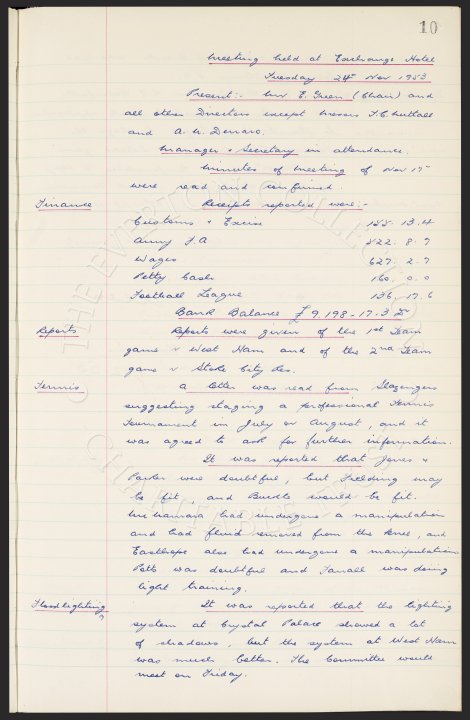 10
Meeting held at Exchange Hotel
Tuesday 24th Nov 1953
Present:- Mr E. Green (Chair) and
all other Directors except Messrs T.C. Nuttall
and A. W. Denaro.
Manager & Secretary in attendance.
Minutes of Meeting of Nov 17th
were read and confirmed.
Finance Receipts reported were:-
Customs & Excise 155. 13. 4
Army F.A 522. 8. 7
Wages 627. 2. 7
Petty Cash 160. 0. 0
Football League 136. 17. 6
Bank Balance £9,198-17-3
Reports Reports were given of the 1st Team
game v West Ham and of the 2nd Team
game v Stoke City Res.
Tennis A letter was read from Slazengers
suggesting staging a professional Tennis
Tournament in July or August, and it
was agreed to ask for further information.
It was reported that Jones &
Parker were doubtful, but Fielding may
be fit, and Buckle would be fit.
McNamara had undergone a manipulation
and had fluid removed from the knee, and
Easthope also had undergone a manipulation
Potts was doubtful and Farrall was doing
light training.
Floodlighting It was reported that the lighting
system at Crystal Palace showed a lot
of shadows, but the system at West Ham
was much better. The Committee would
meet on Friday.
© THE EVERTON COLLECTION
CHARITABLE TRUST